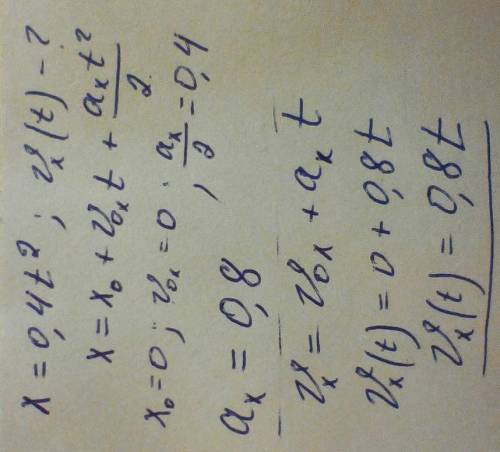 x = 0,4t² ; υₓ(t) - ?
x = x₀ + υ₀ₓt + aₓt²/2
x₀ = 0 ; υ₀ₓ = 0 ; aₓ/2 = 0,4
aₓ = 0,8
υₓ = υ₀ₓ + aₓ t
υₓ(t) = 0 + 0,8t
υₓ(t) = 0,8t